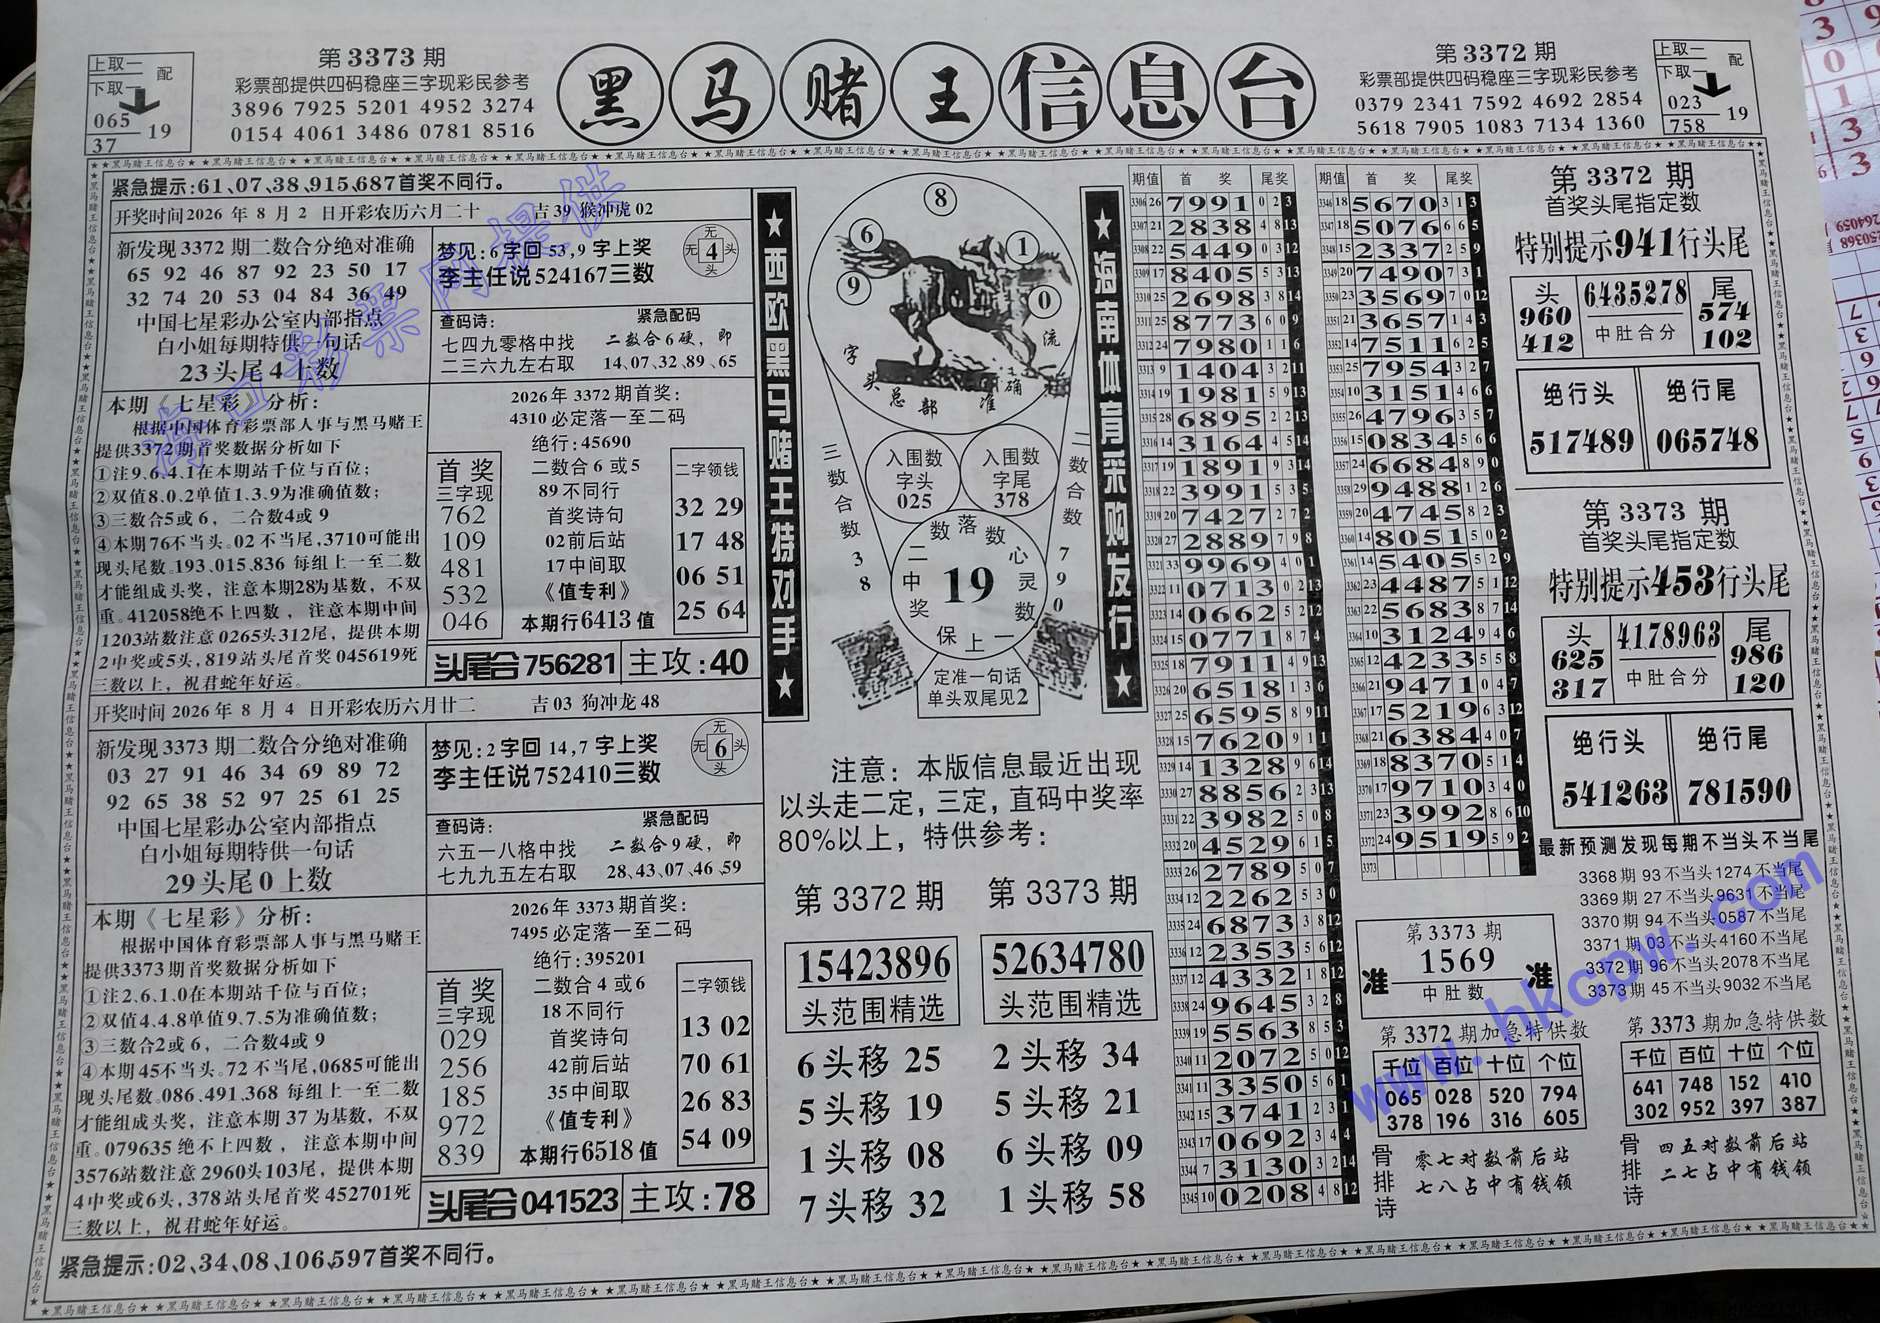 黑马赌王信息台
上取一
下取一
配
065
37
19
第3373期
彩票部提供四码稳座三字现彩民参考
3896 7925 5201 4952 3274
0154 4061 3486 0781 8516
第3372期
彩票部提供四码稳座三字现彩民参考
0379 2341 7592 4692 2854
5618 7905 1083 7134 1360
上取一
下取一
配
023
758
19
紧急提示:61、07、38、915、687首奖不同行。
开奖时间2026年8月2日开彩农历六月二十 吉39 猴冲虎02
新发现3372期二数合分绝对准确
65 92 46 87 92 23 50 17
32 74 20 53 04 84 36 49
中国七星彩办公室内部指点
白小姐每期特供一句话
23头尾4上数
梦见:6字回53,9字上奖
李主任说524167三数
无
无4头
头
查码诗:
七四九零格中找
二三六九左右取
紧急配码
二数合6硬,即
14,07,32,89,65
本期《七星彩》分析:
根据中国体育彩票部人事与黑马赌王
提供3372期首奖数据分析如下
①注9.6.4.1在本期站千位与百位;
②双值8.0.2单值1.3.9为准确值数;
③三数合5或6,二合数4或9
④本期76不当头。02不当尾,3710可能出
现头尾数。193、015、836每组上一至二数
才能组成头奖,注意本期28为基数,不双
重。412058绝不上四数,注意本期中间
1203站数注意0265头312尾,提供本期
2中奖或5头,819站头尾首奖045619死
三数以上,祝君蛇年好运。
2026年3372期首奖:
4310必定落一至二码
绝行:45690
首奖
三字现
762
109
481
532
046
二数合6或5
89不同行
首奖诗句
02前后站
17中间取
《值专利》
本期行6413值
二字领钱
32 29
17 48
06 51
25 64
头尾合756281
主攻:40
开奖时间2026年8月4日开彩农历六月廿二 吉03 狗冲龙48
新发现3373期二数合分绝对准确
03 27 91 46 34 69 89 72
92 65 38 52 97 25 61 25
中国七星彩办公室内部指点
白小姐每期特供一句话
29头尾0上数
梦见:2字回14,7字上奖
李主任说752410三数
无
无6头
头
查码诗:
六五一八格中找
七九九五左右取
紧急配码
二数合9硬,即
28,43,07,46,59
本期《七星彩》分析:
根据中国体育彩票部人事与黑马赌王
提供3373期首奖数据分析如下
①注2.6.1.0在本期站千位与百位;
②双值4.4.8单值9.7.5为准确值数;
③三数合2或6,二合数4或9
④本期45不当头。72不当尾,0685可能出
现头尾数。086、491、368每组上一至二数
才能组成头奖,注意本期37为基数,不双
重。079635绝不上四数,注意本期中间
3576站数注意2960头103尾,提供本期
4中奖或6头,378站头尾首奖452701死
三数以上,祝君蛇年好运。
2026年3373期首奖:
7495必定落一至二码
绝行:395201
首奖
三字现
029
256
185
972
839
二数合4或6
18不同行
首奖诗句
42前后站
35中间取
《值专利》
本期行6518值
二字领钱
13 02
70 61
26 83
54 09
头尾合041523
主攻:78
紧急提示:02、34、08、106、597首奖不同行。
★西欧黑马赌王特对手★
8
6
1
9
0
字头总部准确流
入围数
字头
025
入围数
字尾
378
三数合数38
二数合数790
数落数
二中奖
19
心灵数
保上一
定准一句话
单头双尾见2
★海南体育采购发行★
注意:本版信息最近出现
以头走二定,三定,直码中奖率
80%以上,特供参考:
第3372期
15423896
头范围精选
6头移25
5头移19
1头移08
7头移32
第3373期
52634780
头范围精选
2头移34
5头移21
6头移09
1头移58
期值 首奖 尾奖
3306 26 7991 0 2 3
3307 21 2838 4 8 13
3308 22 5449 0 3 12
3309 17 8405 5 3 13
3310 25 2698 3 8 14
3311 25 8773 6 0 9
3312 24 7980 1 1 6
3313 9 1404 3 2 11
3314 19 1981 5 9 13
3315 28 6895 2 2 13
3316 14 3164 4 5 14
3317 19 1891 9 3 14
3318 22 3991 5 3 5
3319 20 7427 2 7 2
3320 27 2889 7 9 8
3321 33 9969 4 0 1
3322 11 0713 0 2 13
3323 14 0662 5 2 12
3324 15 0771 8 7 4
3325 18 7911 4 9 13
3326 20 6518 1 3 6
3327 25 6595 8 9 11
3328 15 7620 9 1 1
3329 14 1328 9 6 14
3330 27 8856 2 3 13
3331 22 3982 5 0 8
3332 20 4529 6 1 5
3333 26 2789 5 0 7
3334 12 2262 5 3 0
3335 24 6873 3 8 12
3336 12 2353 5 6 12
3337 12 4332 1 8 12
3338 24 9645 3 2 8
3339 19 5563 8 5 3
3340 11 2072 5 0 12
3341 11 3350 5 6 1
3342 15 3741 2 3 1
3343 17 0692 3 4 4
3344 7 3130 3 2 14
3345 10 0208 4 8 12
期值 首奖 尾奖
3346 18 5670 3 1 3
3347 18 5076 6 6 5
3348 15 2337 2 5 9
3349 20 7490 7 3 1
3350 23 3569 7 0 12
3351 21 3657 1 4 3
3352 14 7511 6 2 5
3353 25 7954 3 2 7
3354 10 3151 4 6 6
3355 26 4796 3 5 7
3356 15 0834 5 6 6
3357 24 6684 8 9 0
3358 29 9488 1 2 6
3359 20 4745 8 2 3
3360 14 8051 5 0 2
3361 14 5405 5 2 9
3362 23 4487 5 1 12
3363 22 5683 8 7 14
3364 10 3124 9 4 6
3365 12 4233 5 5 8
3366 21 9471 0 4 7
3367 17 5219 6 3 12
3368 21 6384 4 0 7
3369 18 8370 5 1 4
3370 17 9710 3 4 0
3371 23 3992 8 6 10
3372 24 9519 5 9 2
3373
第3373期
准 1569 准
中肚数
第3372期
首奖头尾指定数
特别提示941行头尾
头
960
412
6435278
中肚合分
尾
574
102
绝行头
517489
绝行尾
065748
第3373期
首奖头尾指定数
特别提示453行头尾
头
625
317
4178963
中肚合分
尾
986
120
绝行头
541263
绝行尾
781590
最新预测发现每期不当头不当尾
3368期93不当头1274不当尾
3369期27不当头9631不当尾
3370期94不当头0587不当尾
3371期03不当头4160不当尾
3372期96不当头2078不当尾
3373期45不当头9032不当尾
第3372期加急特供数
千位 百位 十位 个位
065 028 520 794
378 196 316 605
骨排诗
零七对数前后站
七八占中有钱领
第3373期加急特供数
千位 百位 十位 个位
641 748 152 410
302 952 397 387
骨排诗
四五对数前后站
二七占中有钱领
海口彩票网提供
www.hkcpw.com